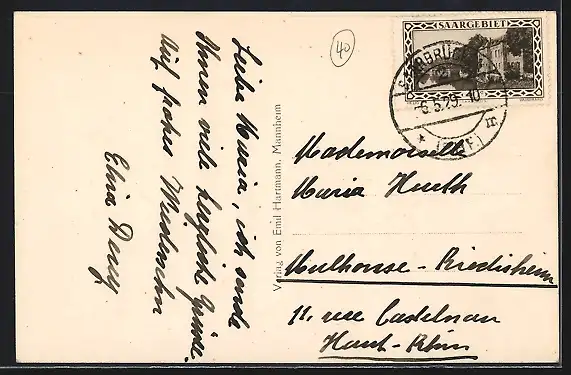 Liebe Maria, ich sende
Ihnen viele herzliche Grüsse.
Auf frohes Wiedersehn
40
Verlag von Emil Hartmann, Mannheim
SAARGEBIET
SAARBRÜCKEN
-6.5.29. 10
Mademoiselle
Maria Hueth
Mulhouse-Riedisheim
11, rue Castelnau
Haut-Rhin